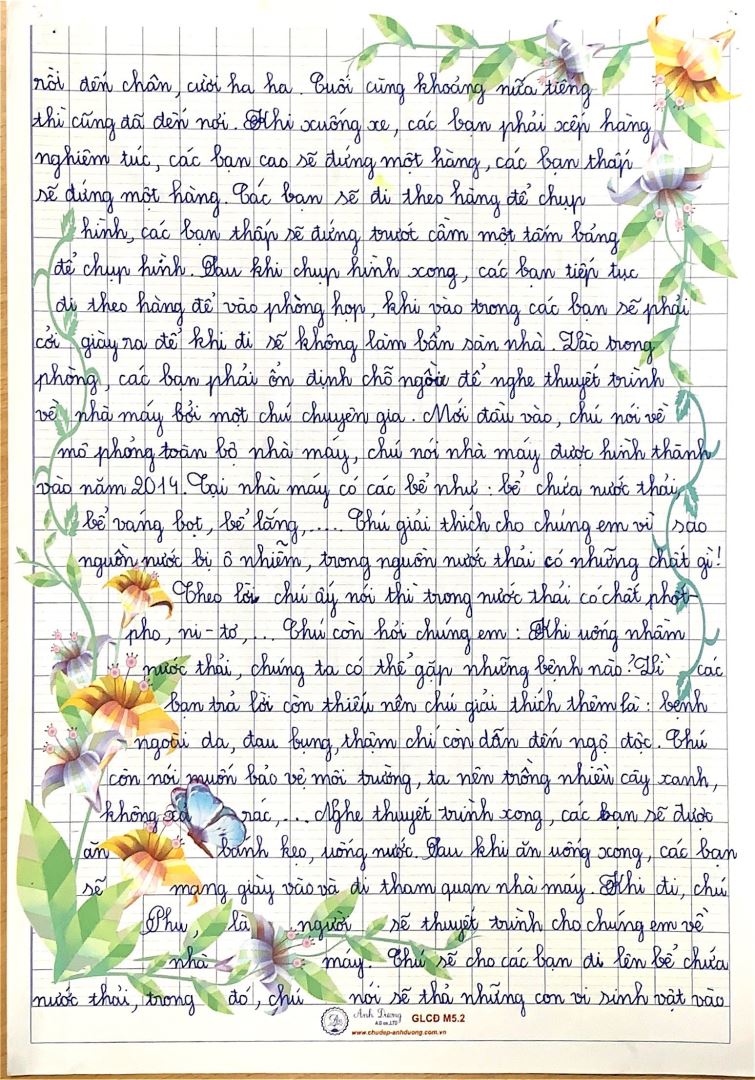 rồi đến chân, cười ha ha. Cuối cùng khoảng nửa tiếng
thì cũng đã đến nơi. Khi xuống xe, các bạn phải xếp hàng
nghiêm túc, các bạn cao sẽ đứng một hàng, các bạn thấp
sẽ đứng một hàng. Các bạn sẽ đi theo hàng để chụp
hình, các bạn thấp sẽ đứng trướt cầm một tấm bảng
để chụp hình. Sau khi chụp hình xong, các bạn tiếp tục
đi theo hàng để vào phòng họp, khi vào trong các bạn sẽ phải
cởi giày ra để khi đi sẽ không làm bẩn sàn nhà. Vào trong
phòng, các bạn phải ổn định chỗ ngồi để nghe thuyết trình
về nhà máy bởi một chú chuyên gia. Mới đầu vào, chú nói về
mô phỏng toàn bộ nhà máy, chú nói nhà máy được hình thành
vào năm 2014. Tại nhà máy có các bể như: bể chứa nước thải,
bể váng bọt, bể lắng,.... Chú giải thích cho chúng em vì sao
nguồn nước bị ô nhiễm, trong nguồn nước thải có những chất gì!
Theo lời chú ấy nói thì trong nước thải có chất phốt-
pho, ni-tơ,... Chú còn hỏi chúng em: Khi uống nhầm
nước thải, chúng ta có thể gặp những bệnh nào? Vì các
bạn trả lời còn thiếu nên chú giải thích thêm là: bệnh
ngoài da, đau bụng, thậm chí còn dẫn đến ngộ độc. Chú
còn nói muốn bảo vệ môi trường, ta nên trồng nhiều cây xanh,
không xả rác,... Nghe thuyết trình xong, các bạn sẽ được
ăn bánh kẹo, uống nước. Sau khi ăn uống xong, các bạn
sẽ mang giày vào và đi tham quan nhà máy. Khi đi, chú
Phu, là người sẽ thuyết trình cho chúng em về
nhà máy. Chú sẽ cho các bạn đi lên bể chứa
nước thải, trong đó, chú nói sẽ thả những con vi sinh vật vào
Anh Dương
AD co.,LTD
GLCĐ M5.2
www.chudep-anhduong.com.vn